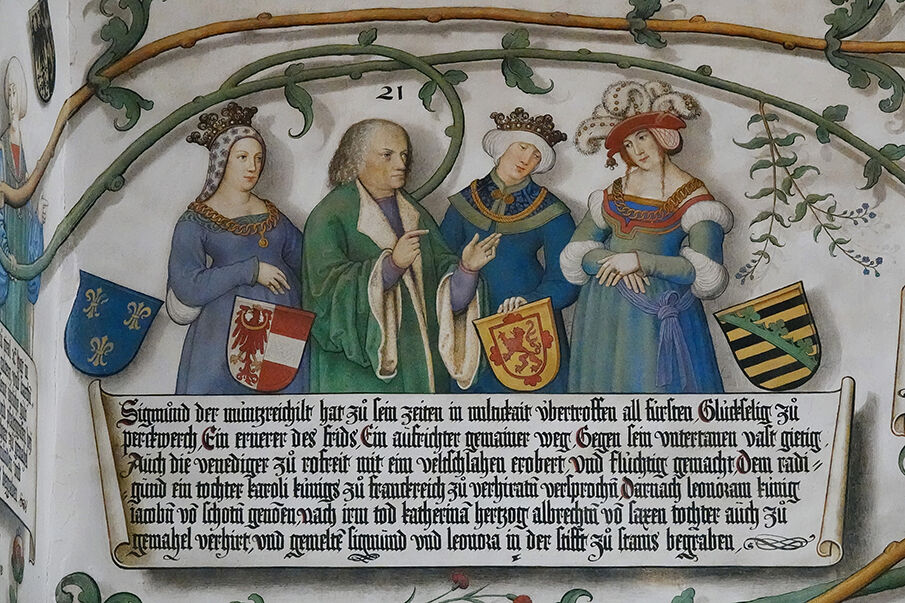 21
Sigmund der müntzreichist hat zů sein zeiten in miltikait vbertroffen all fürsten Glückselig zů
perckwerch Ein ernerer des frids Ein aufrichter gemainer weg Gegen sein vntertanen vast gietig
Auch die venediger zů rofreit mit eim veltschlahen erobert vnd flüchtig gemacht Dem radi=
gund ein tochter karoli künigs zů franckreich zů verhiratn̄ versprochn̄ Darnach leonoram künig
iacobn̄ vō schotn̄ genōen nach irm tod katherinā hertzog albrechtn̄ vō saxen tochter auch zů
gemahel verhirt vnd gemelte sigmund vnd leonora in der stifft zů stams begraben